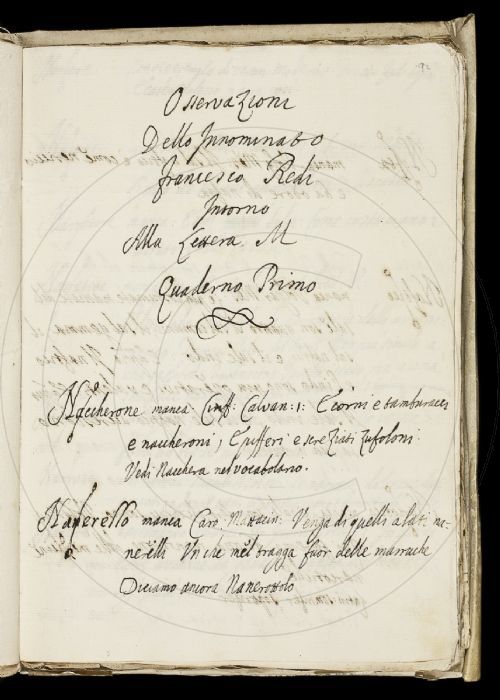 92
Osservazioni
Dello Innominato
Francesco Redi
Intorno
Alla Lettera M
Quaderno Primo
Naccherone manca Ciriff: Calvan: 1: Corni e tamburacci
e naccheroni, e pifferi e zufoloni.
Vedi Nacchera nel vocabolario.
Nanerello manca Caro. Mattacin: Venga di quelli alati na-
nerelli Un che mel tragga fuor delle marruche
Diciamo ancora Nanerottolo